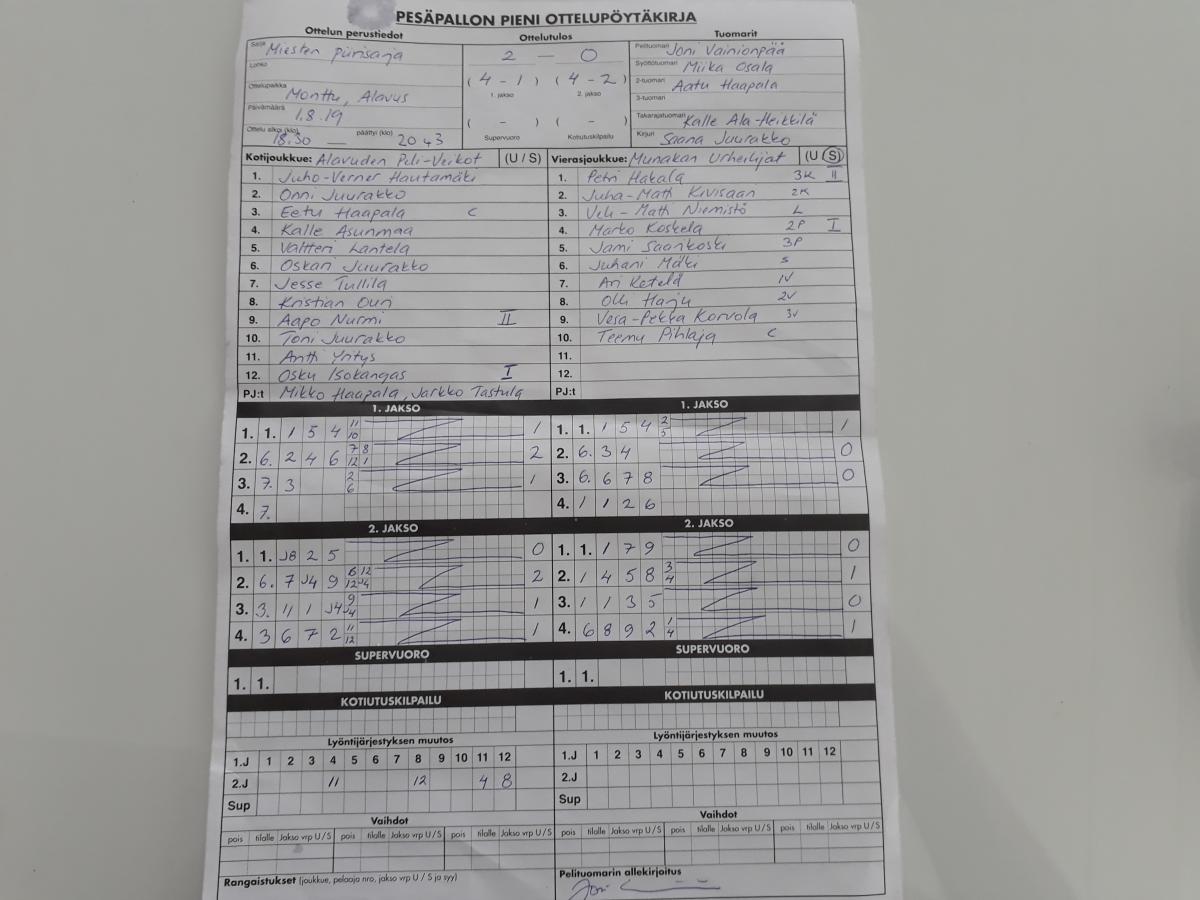 PESÄPALLON PIENI OTTELUPÖYTÄKIRJA
Ottelun perustiedot Ottelutulos Tuomarit
Sarja Miesten piirisarja
Lohko
Ottelupaikka Monttu, Alavus
Päivämäärä 1.8.19
Ottelu alkoi (klo) 18.30 — päättyi (klo) 20.43
2 — 0
(4 - 1) (4 - 2)
1. jakso 2. jakso
( - ) ( - )
Supervuoro Kotiutuskilpailu
Pelituomari Joni Vainionpää
Syöttötuomari Miika Osala
2-tuomari Aatu Haapala
3-tuomari
Takarajatuomari Kalle Ala-Heikkilä
Kirjuri Saana Juurakko
Kotijoukkue: Alavuden Peli-Veikot (U / S)
1. Juho-Verner Hautamäki
2. Onni Juurakko
3. Eetu Haapala C
4. Kalle Asunmaa
5. Valtteri Lantela
6. Oskari Juurakko
7. Jesse Tullila
8. Kristian Ouri
9. Aapo Nurmi II
10. Toni Juurakko
11. Antti Yritys
12. Osku Isokangas I
PJ:t Mikko Haapala, Jarkko Tastula
Vierasjoukkue: Munakan Urheilijat (U / S)
1. Petri Hakala 3K II
2. Juha-Matti Kivisaari 2K
3. Veli-Matti Niemistö L
4. Marko Koskela 2P I
5. Jami Saarikoski 3P
6. Juhani Mäki S
7. Ari Ketelä 1V
8. Olli Harju 2V
9. Vesa-Pekka Korvola 3V
10. Teemu Pihlaja C
11.
12.
PJ:t
1. JAKSO
1. 1. 1 5 4 11 10 1
2. 6. 2 4 6 7 8 12 1 2
3. 7. 3 2 6 1
4. 7.
1. JAKSO
1. 1. 1 5 4 2 5 1
2. 6. 3 4 0
3. 6. 6 7 8 0
4. 1 1 2 6
2. JAKSO
1. 1. J8 2 5 0
2. 6. 7 J4 9 6 12 12 J4 2
3. 3. 11 1 J4 9 J4 1
4. 3 6 7 2 11 12 1
2. JAKSO
1. 1. 1 7 9 0
2. 1 4 5 8 3 4 1
3. 1 1 3 5 0
4. 6 8 9 2 1 4 1
SUPERVUORO SUPERVUORO
1. 1. 1. 1.
KOTIUTUSKILPAILU KOTIUTUSKILPAILU
Lyöntijärjestyksen muutos
1.J 1 2 3 4 5 6 7 8 9 10 11 12
2.J 11 12 4 8
Sup
Lyöntijärjestyksen muutos
1.J 1 2 3 4 5 6 7 8 9 10 11 12
2.J
Sup
Vaihdot Vaihdot
pois tilalle Jakso vrp U / S pois tilalle Jakso vrp U / S pois tilalle Jakso vrp U / S
pois tilalle Jakso vrp U / S pois tilalle Jakso vrp U / S pois tilalle Jakso vrp U / S
Rangaistukset (joukkue, pelaaja nro, jakso vrp U / S ja syy)
Pelituomarin allekirjoitus
Joni